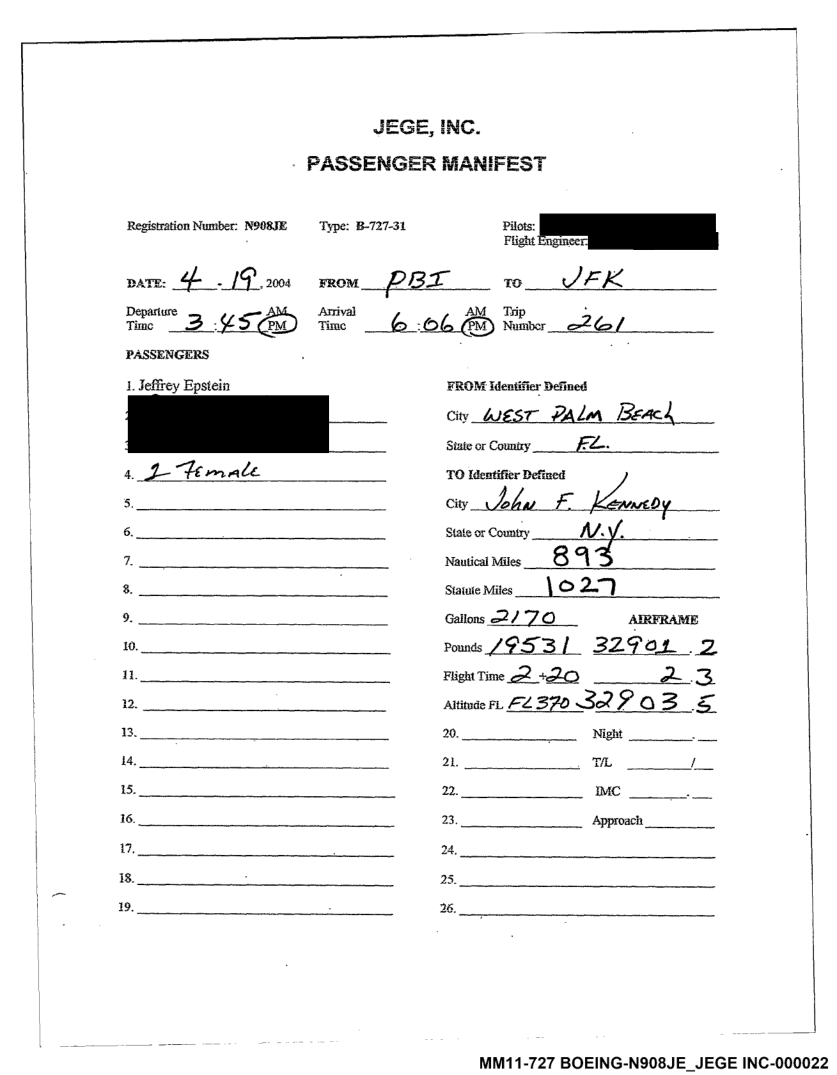 JEGE, INC.
PASSENGER MANIFEST
Registration Number: N908JE Type: B-727-31 Pilots:
Flight Engineer:
DATE: 4 - 19, 2004 FROM PBI TO JFK
Departure Time 3:45 AM PM Arrival Time 6:06 AM PM Trip Number 261
PASSENGERS
1. Jeffrey Epstein FROM Identifier Defined
2 City WEST PALM BEACH
3 State or Country FL.
4. 1 Female TO Identifier Defined
5. City John F. KENNEDY
6. State or Country N.Y.
7. Nautical Miles 893
8. Statute Miles 1027
9. Gallons 2170 AIRFRAME
10. Pounds 19531 32901.2
11. Flight Time 2+20 2.3
12. Altitude FL FL370 32903.5
13. 20. Night .
14. 21. T/L /
15. 22. IMC .
16. 23. Approach
17. 24.
18. 25.
19. 26.
MM11-727 BOEING-N908JE_JEGE INC-000022